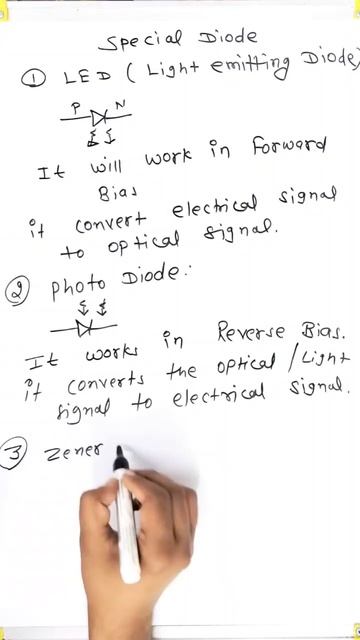 Special Diode
① LED (Light emitting Diode)
P N
It will work in Forward
Bias
it convert electrical signal
to optical signal.
② Photo Diode:
It works in Reverse Bias.
it converts the optical/Light
signal to electrical signal.
③ Zener